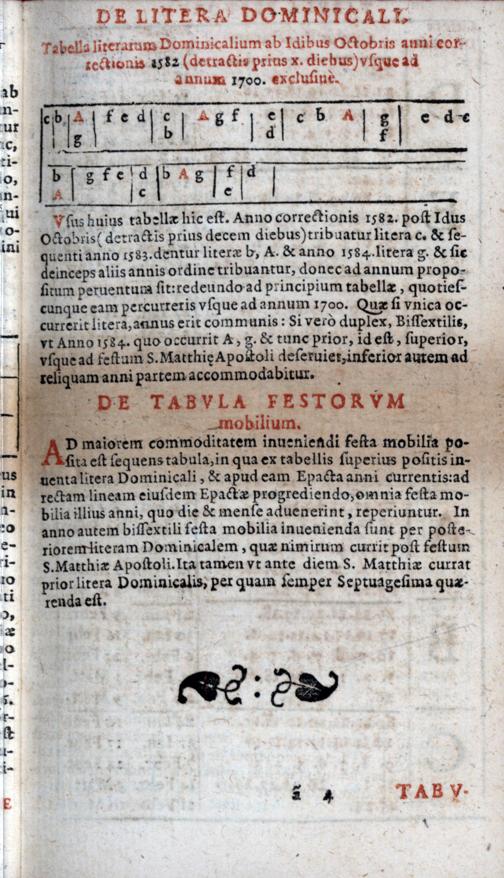 DE LITERA DOMINICALI.
Tabella literarum Dominicalium ab Idibus Octobris anni cor-
rectionis 1582 (detractis prius x. diebus) vsque ad
annum 1700. exclusiuè.
c b A f e d c A g f e c b A g e d c
g b d f
b g f e d b A g f d
A c e
Vsus huius tabellæ hic est. Anno correctionis 1582. post Idus
Octobris (detractis prius decem diebus) tribuatur litera c. & se-
quenti anno 1583. dentur literæ b, A. & anno 1584. litera g. & sic
deinceps aliis annis ordine tribuantur, donec ad annum propo-
situm peruentum sit: redeundo ad principium tabellæ, quoties-
cunque eam percurreris vsque ad annum 1700. Quæ si vnica oc-
currerit litera, annus erit communis: Si verò duplex, Bissextilis,
vt Anno 1584. quo occurrit A, g. & tunc prior, id est, superior,
vsque ad festum S. Matthię Apostoli deseruiet, inferior autem ad
reliquam anni partem accommodabitur.
DE TABVLA FESTORVM
mobilium.
AD maiorem commoditatem inueniendi festa mobilia po-
sita est sequens tabula, in qua ex tabellis superius positis in-
uenta litera Dominicali, & apud eam Epacta anni currentis: ad
rectam lineam eiusdem Epactæ progrediendo, omnia festa mo-
bilia illius anni, quo die & mense aduenerint, reperiuntur. In
anno autem bissextili festa mobilia inuenienda sunt per poste-
riorem literam Dominicalem, quæ nimirum currit post festum
S. Matthiæ Apostoli. Ita tamen vt ante diem S. Matthiæ currat
prior litera Dominicalis, per quam semper Septuagesima quæ-
renda est.
ã 4 TABV-